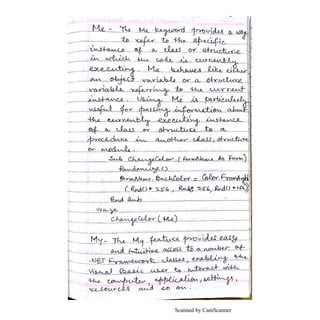 Me - The Me keyword provides a way
to refer to the specific
instance of a class or structure
in which the code is currently
executing. Me behaves like either
an object variable or a structure
variable referring to the current
instance. Using Me is particularly
useful for passing information about
the currently executing instance
of a class or structure to a
procedure in another class, structure
or module.
Sub ChangeColor (FormName As Form)
Randomize()
FormName.BackColor = Color.FromArgb
(Rnd() * 256, Rnd() 256, Rnd() * 256)
End Sub
usage
ChangeColor (Me)
My - The My feature provides easy
and intuitive access to a number of
.NET Framework classes, enabling the
Visual Basic user to interact with
the computer, application, settings,
resources and so on.
Scanned by CamScanner